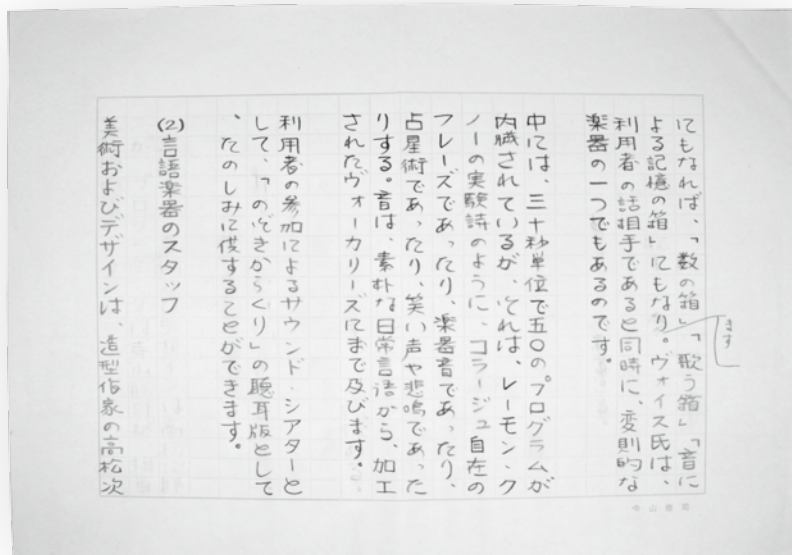 にもなれば、「数の箱」「歌う箱」「音に
よる記憶の箱」にもなり。ヴォイス氏は、
ます
利用者の話相手であると同時に、変則的な
楽器の一つでもあるのです。
中には、三十秒単位で五〇のプログラムが
内臓されているが、それは、レーモン・ク
ノーの実験詩のように、コラージュ自在の
フレーズであったり、楽器音であったり、
占星術であったり、笑い声や悲鳴であった
りする。音は、素朴な日常言語から、加工
されたヴォーカリーズにまで及びます。
利用者の参加によるサウンド・シアターと
して、「のぞきからくり」の聴耳版として
、たのしみに供することができます。
(2)言語楽器のスタッフ
美術およびデザインは、造型作家の高松次